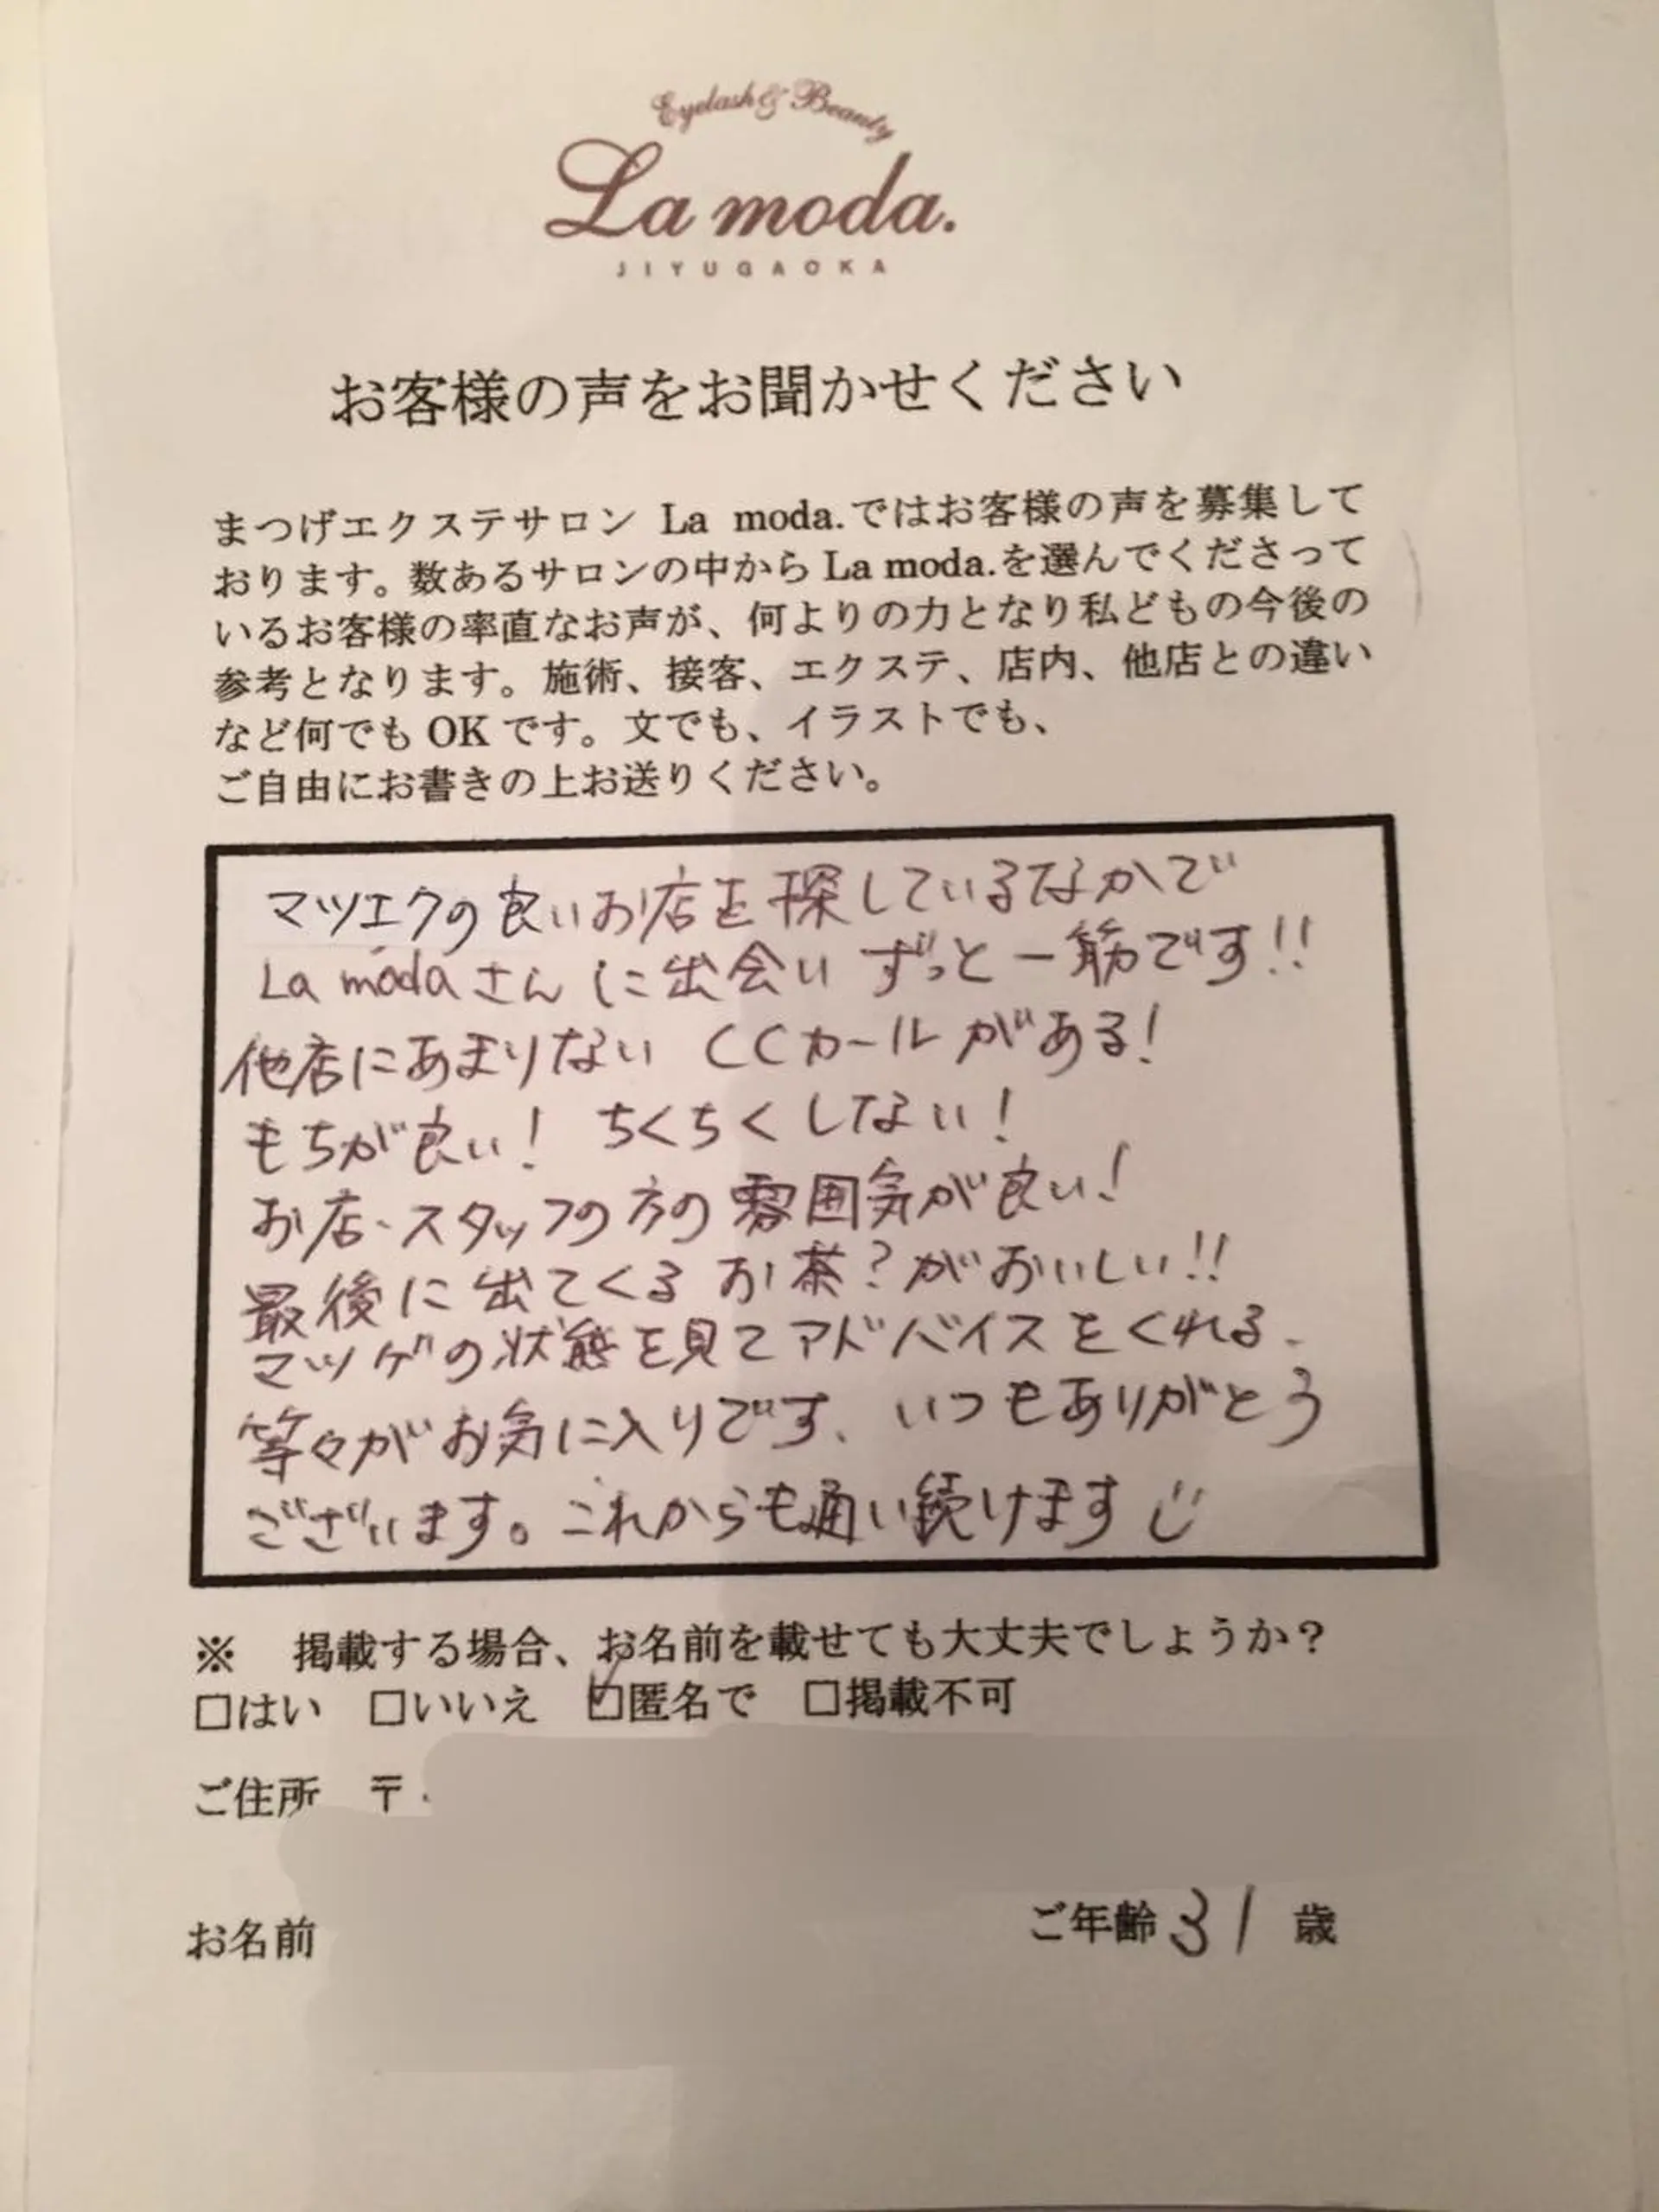 Eyelash & Beauty
La moda.
JIYUGAOKA
お客様の声をお聞かせください
まつげエクステサロン La moda.ではお客様の声を募集して
おります。数あるサロンの中から La moda.を選んでくださって
いるお客様の率直なお声が、何よりの力となり私どもの今後の
参考となります。施術、接客、エクステ、店内、他店との違い
など何でも OK です。文でも、イラストでも、
ご自由にお書きの上お送りください。
マツエクの良いお店を探しているなかで
La modaさんに出会いずっと一筋です!!
他店にあまりない CCカールがある!
もちが良い! ちくちくしない!
お店、スタッフの方の雰囲気が良い!
最後に出てくるお茶?がおいしい!!
マツゲの状態を見てアドバイスをくれる、
等々がお気に入りです、いつもありがとう
ございます。これからも通い続けます
※ 掲載する場合、お名前を載せても大丈夫でしょうか?
□はい □いいえ ☑匿名で □掲載不可
ご住所 〒
お名前 ご年齢 31 歳